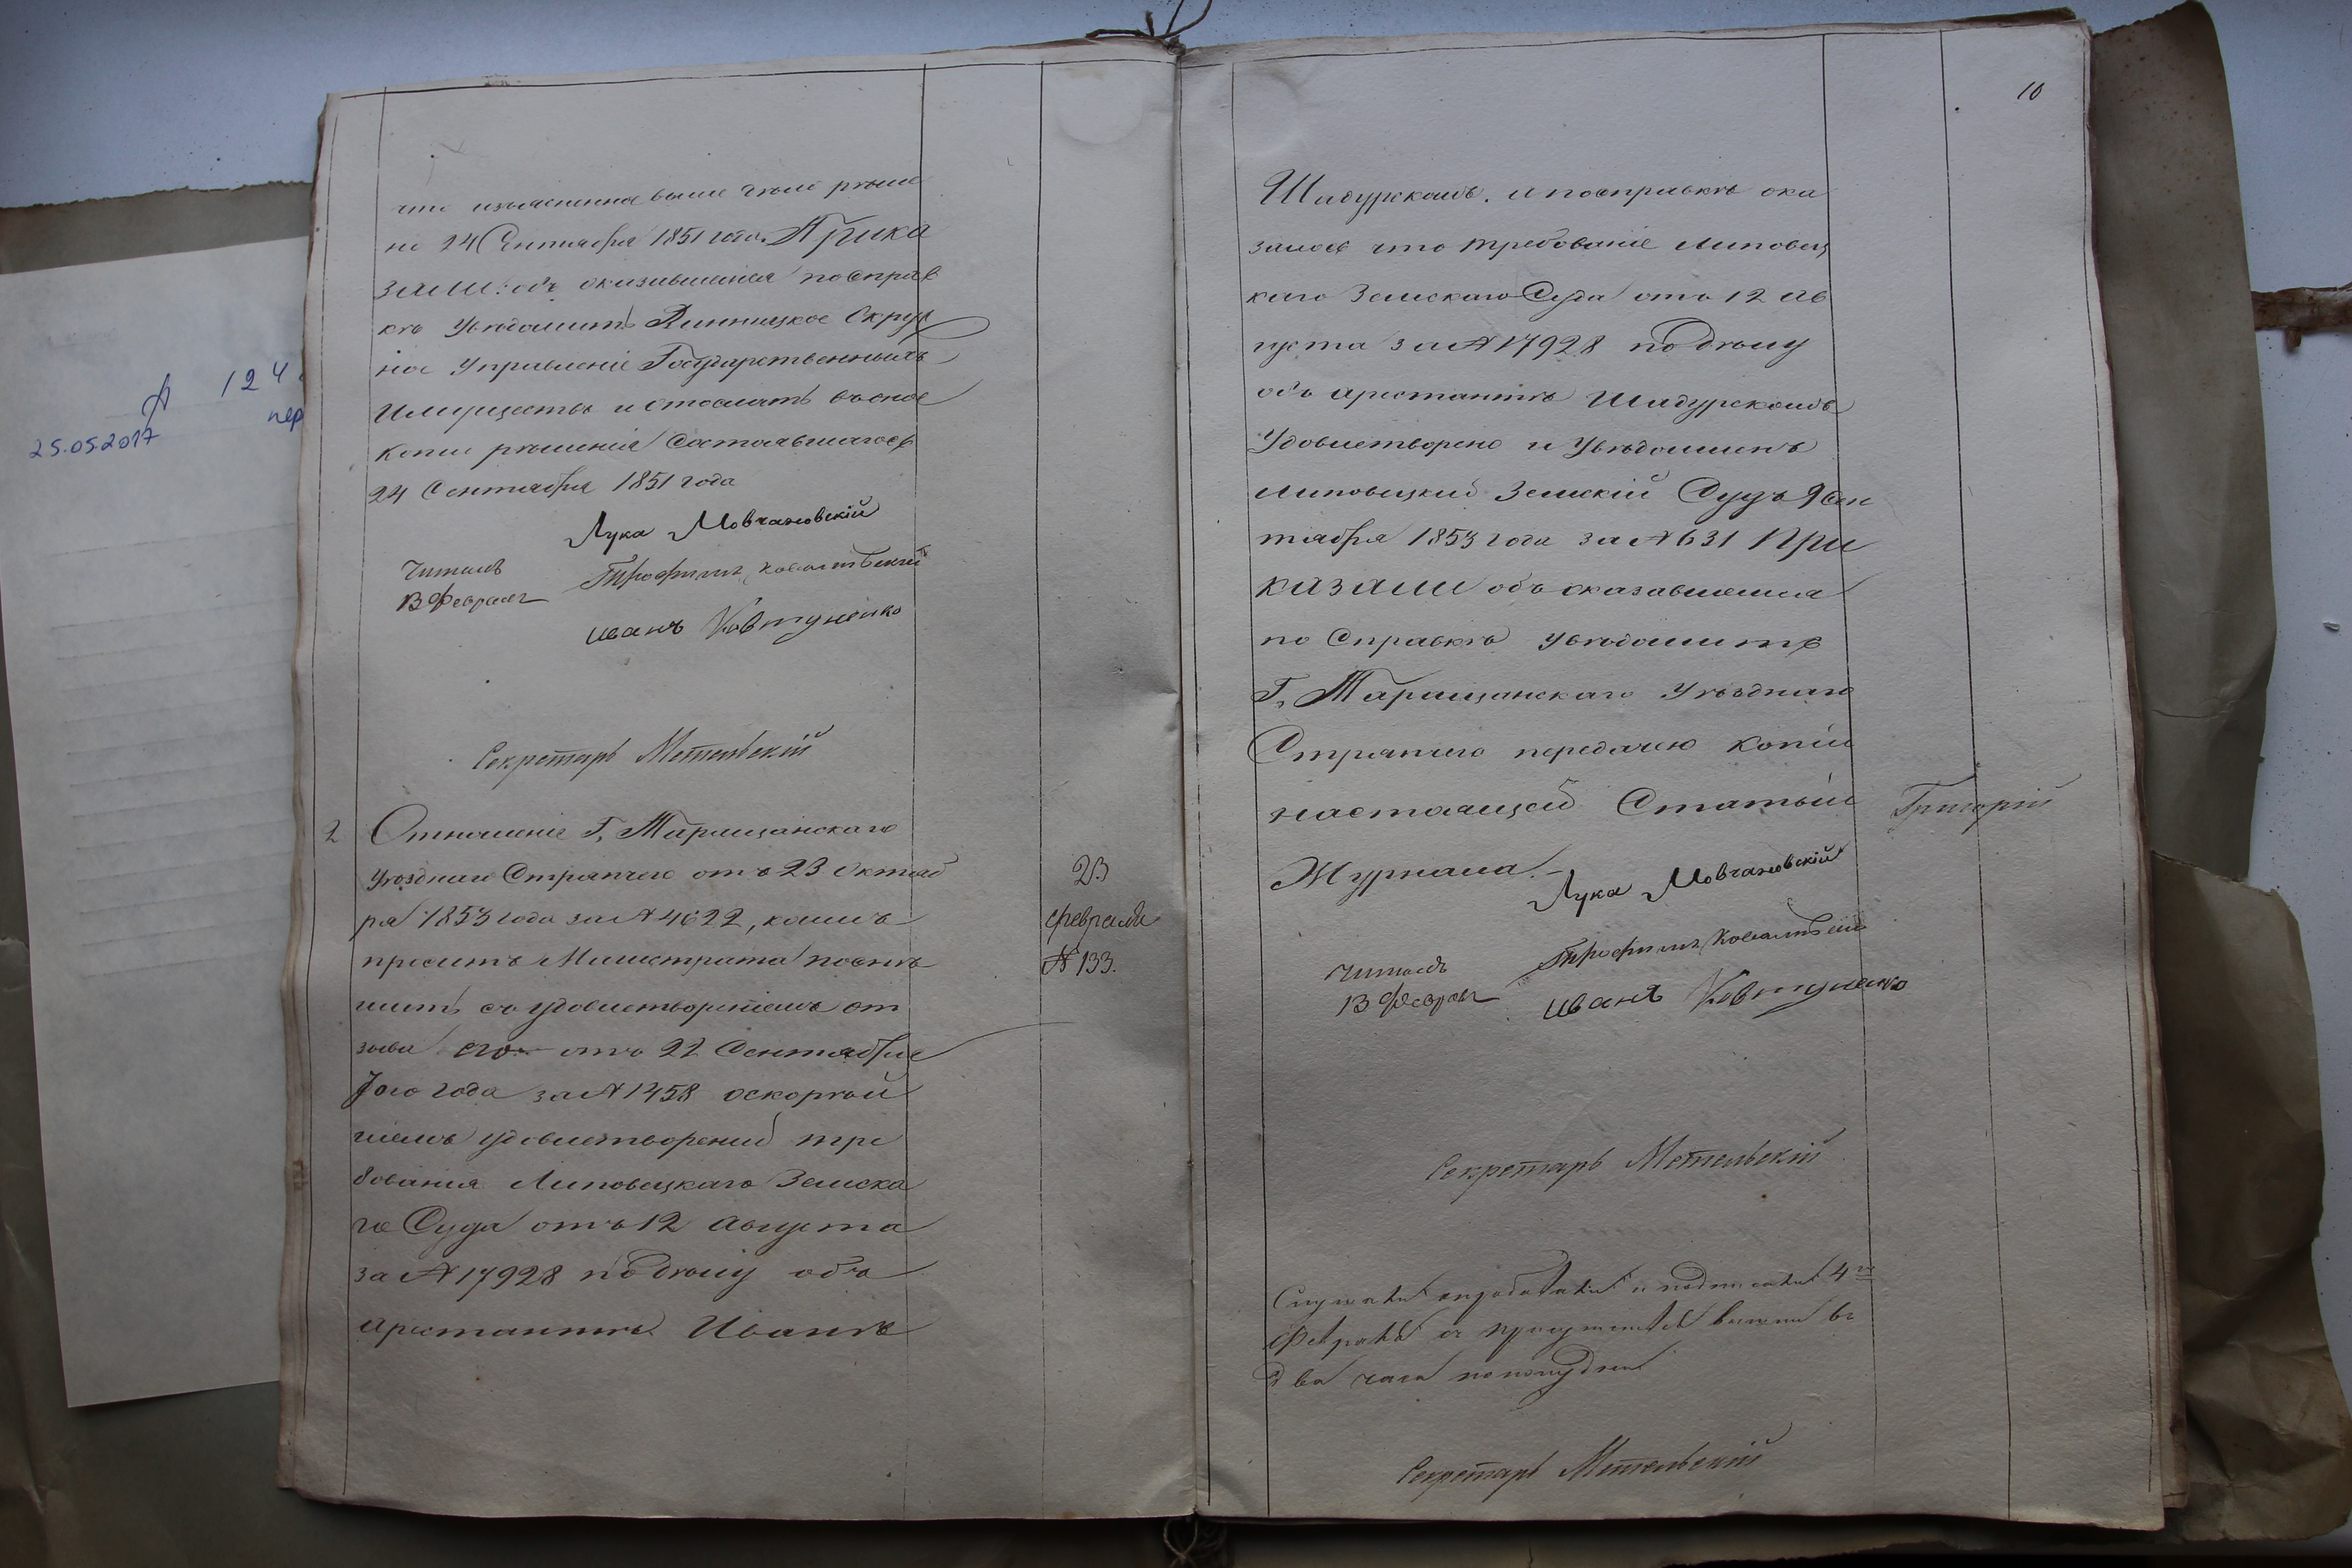 что изъясненное выше дело реше
но 24 Сентября 1851 года. Прика
зали: объ оказавшемся по справ
кѣ увѣдомить Винницкое Окруж
ное Управленіе Государственныхъ
Имуществъ и отослать въ оное
копіи рѣшенія состоявшагося
24 Сентября 1851 года
Лука Мовчановскій
Читалъ
13 Февраля
Трофимъ Ковальскій
Иванъ Ковтуненко
Секретарь Метельскій
2 Отношеніе Г. Таращанскаго
Уѣзднаго Стряпчего отъ 23 Октяб
ря 1853 года за № 4622, коимъ
проситъ Магистрата поспѣ
шить съ удовлетвореніемъ от
зыва его отъ 22 Сентября
того года за № 1458 о скорѣй
шемъ удовлетвореніи тре
бованія Липовецкаго Земска
го Суда отъ 12 Августа
за № 17928 по дѣлу объ
арестантѣ Иванѣ
23
февраля
№ 133.
10
Шидурскомъ. и по справкѣ ока
залось что требованіе Липовец
каго Земскаго Суда отъ 12 Ав
густа за № 17928 по дѣлу
объ арестантѣ Шидурскомъ
удовлетворено и увѣдомленъ
Липовецкій Земскій Судъ 9 Сен
тября 1853 года за № 631 При
казали объ оказавшемся
по справкѣ увѣдомить
Г. Таращанскаго Уѣзднаго
Стряпчего передачею копіи
настоящей Статьи
Григорій
Журнала.
Лука Мовчановскій
Читалъ
13 Февраля
Трофимъ Ковальскій
Иванъ Ковтуненко
Секретарь Метельскій
Слушали и подписали 4го
Февраля въ
два часа пополудни
Секретарь Метельскій
№ 124
пер
25.05.2017